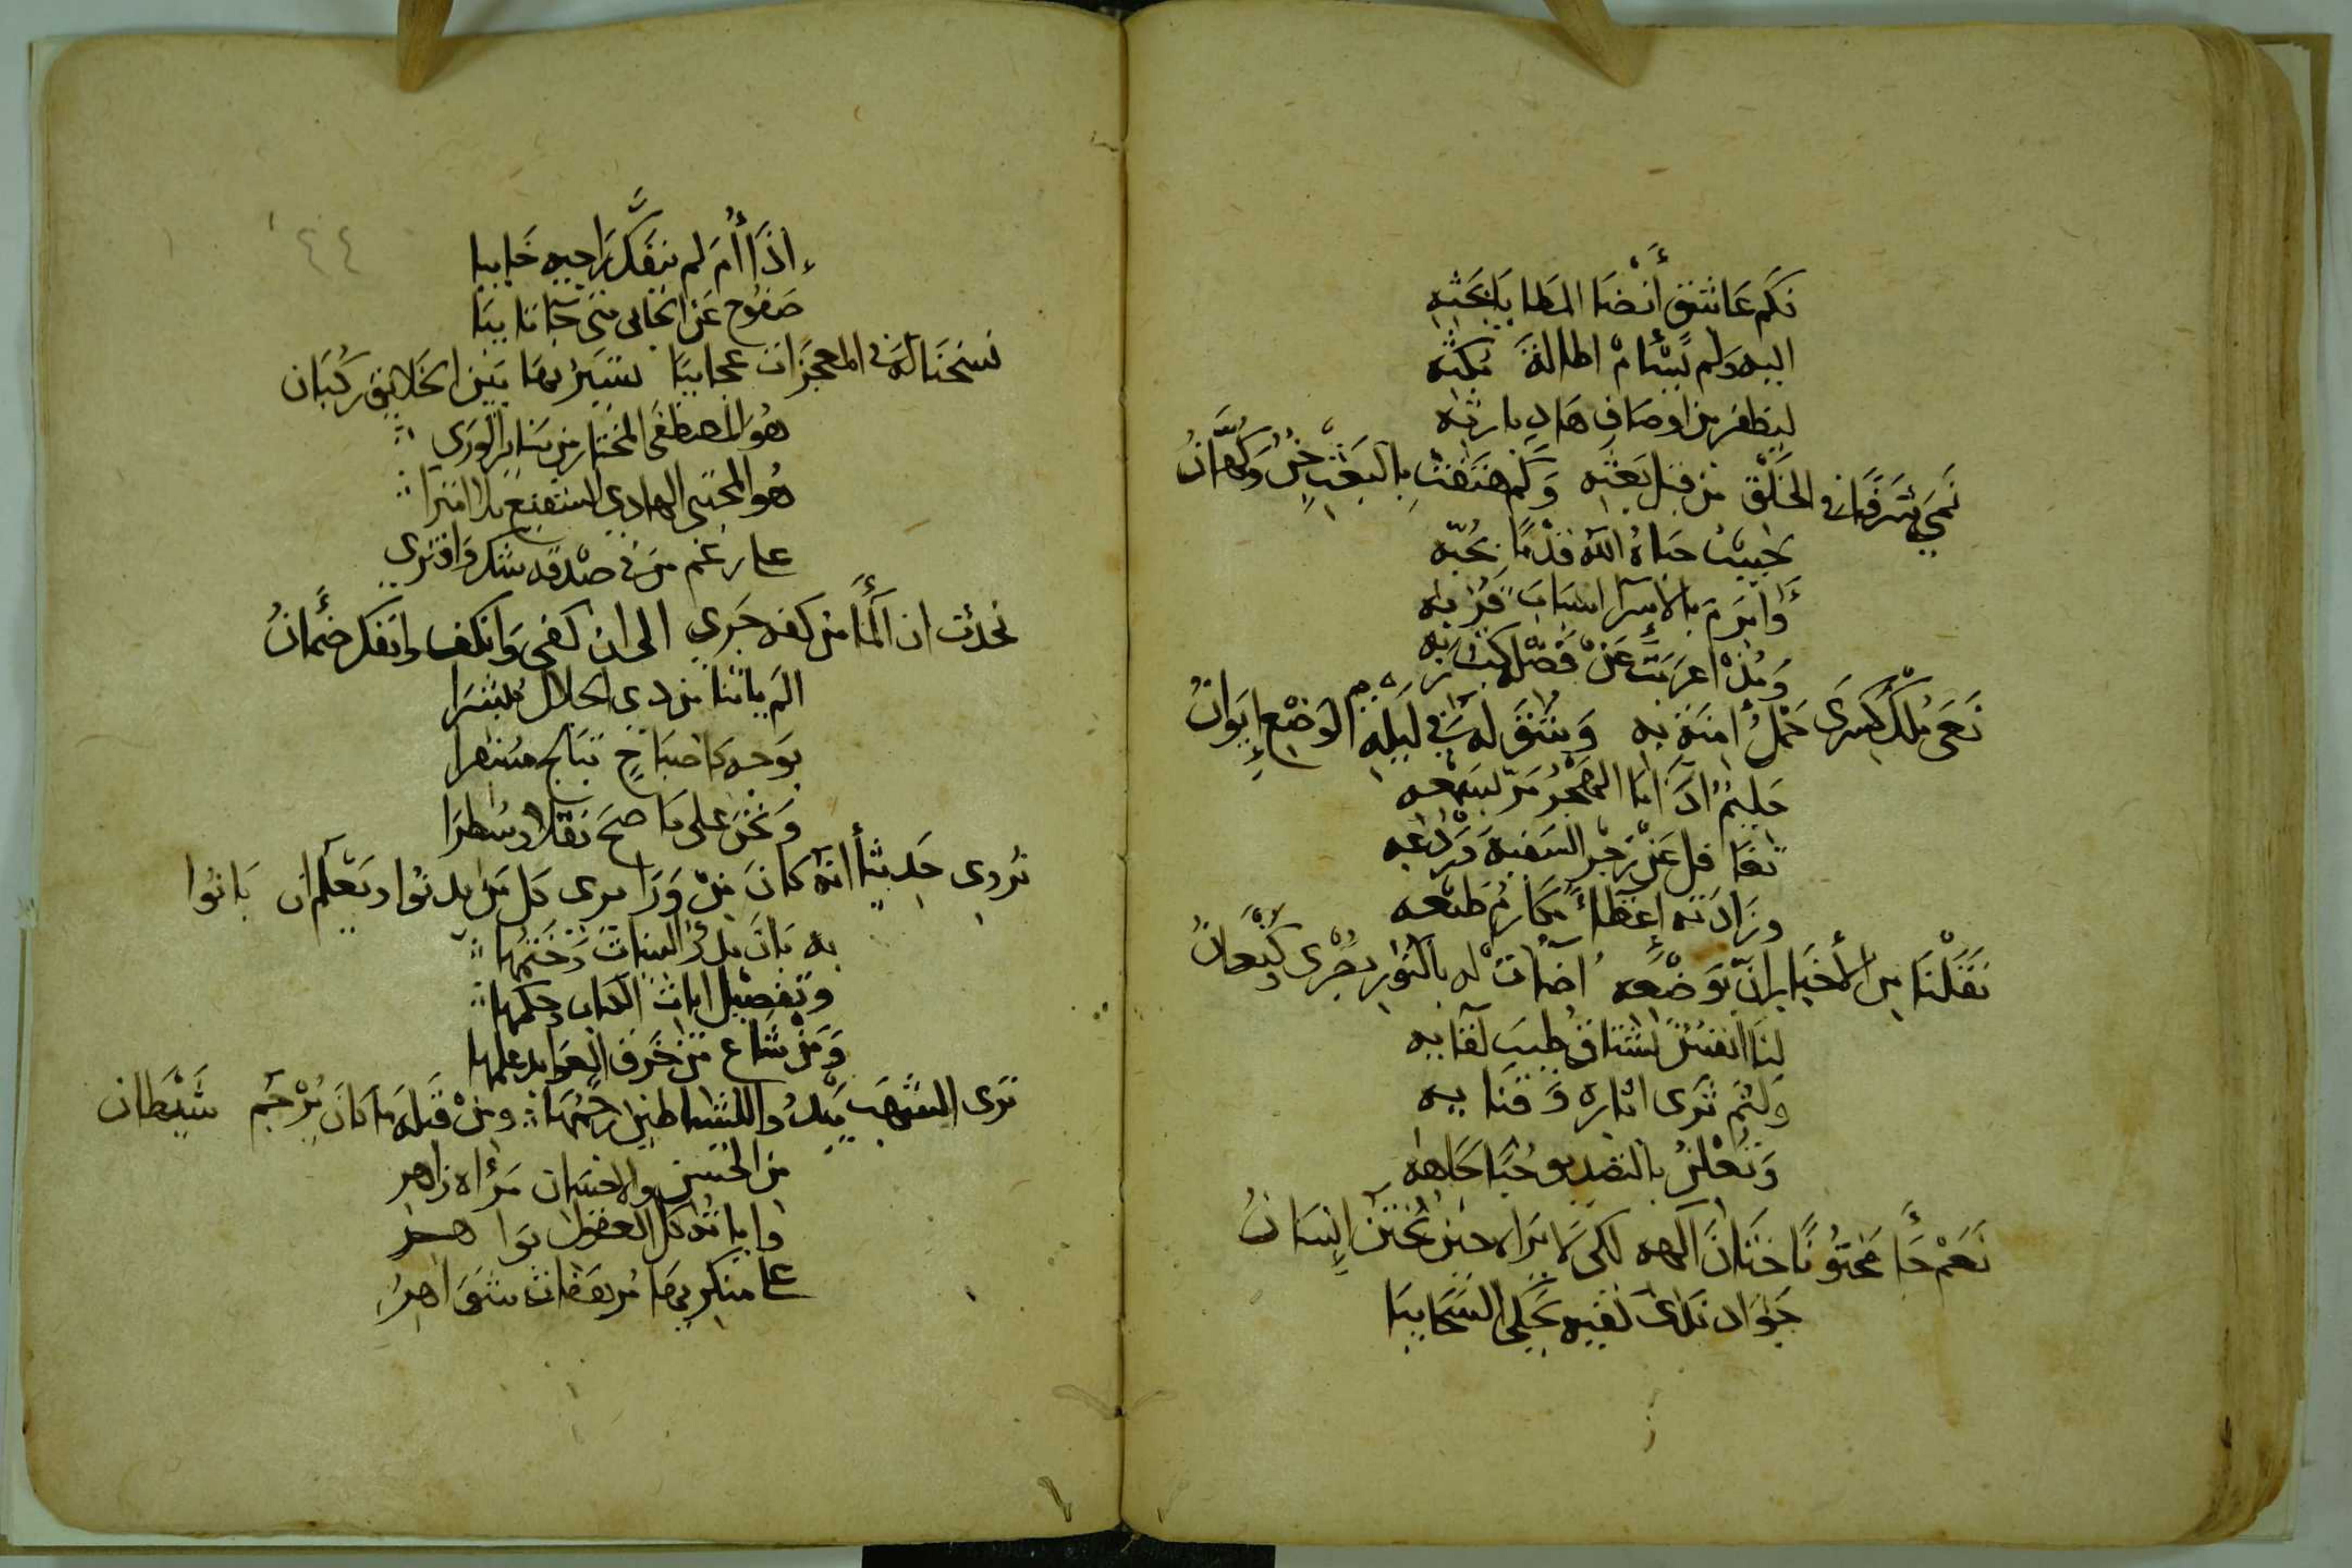 فكم عاشق أنضا المطايا بحثه
اليه ولم يسأم اطالة مكثه
ليظفر من اوصاف هاد بارثه
نمي شرفا في الخلق من قبل بعثه وكم هتفت بالبعث جن وكهان
حبيب حباه الله قدما بحبه
وابرم بالاسرا اسباب قربه
ومذ اعربت عن فضل كتب ربه
نعى ملك كسرى حمل امنة به وشق له في ليلة الوضع ايوان
حليم اذا ما الهجر مر بسمعه
تغافل عن زجر السفيه وردعه
وزادته اعظا مكارم طبعه
نقلنا من الأخبار ان بوضعه اضات له بالنور بصرى وكنعان
لنا انفس تشتاق طيب لقايه
ولثم ثرى اثاره وفنايه
ونعلن بالتصديق حبا جاهه
نعم جا مختونا ختان الهه لكي لا يرا لا حين يختن انسان
جواد ندى كفيه يحكي السحايبا
٤٤
اذا أم لم ينفك راجيه خايبا
صفوح عن الجاني متى جا تايبا
نسخنا له في المعجزات عجايبا تسير بها بين الخلايق ركبان
هو المصطفى المختار من ساير الورى
هو المجتبى الهادي الشفيع بلا امترا
على رغم من في صدقه شك وافترى
تحدثت ان ألما من كفه جرى الى ان كفى وانكف وانفك ضمان
الم ياتنا من ذي الجلال مبشرا
بوجه كاصباح تبلج مسفرا
ونحن على ما صح نقلا وسطرا
نروى حديثا انه كان من ورا يرى كل من يدنوا ويعلم ان بانوا
به بان بدؤ البينات وختمها
وتفصيل ايات الكتاب وحكمها
ومن شاع من خرق العوايد علمها
ترى الشهب يبدو للشياطين رجمها ومن قبله ما كان يرجم شيطان
من الحسن والاحسان مرأاه زاهر
واياته كل العقول بواهر
على منكريها مرهفات شواهر